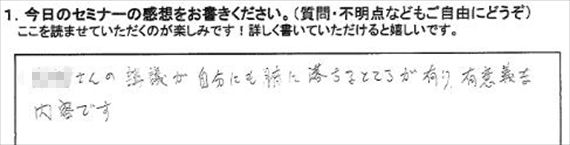 1. 今日のセミナーの感想をお書きください。(質問・不明点などもご自由にどうぞ)
ここを読ませていただくのが楽しみです!詳しく書いていただけると嬉しいです。
さんの認識が自分にも腑に落ちるところが有り、有意義な
内容です